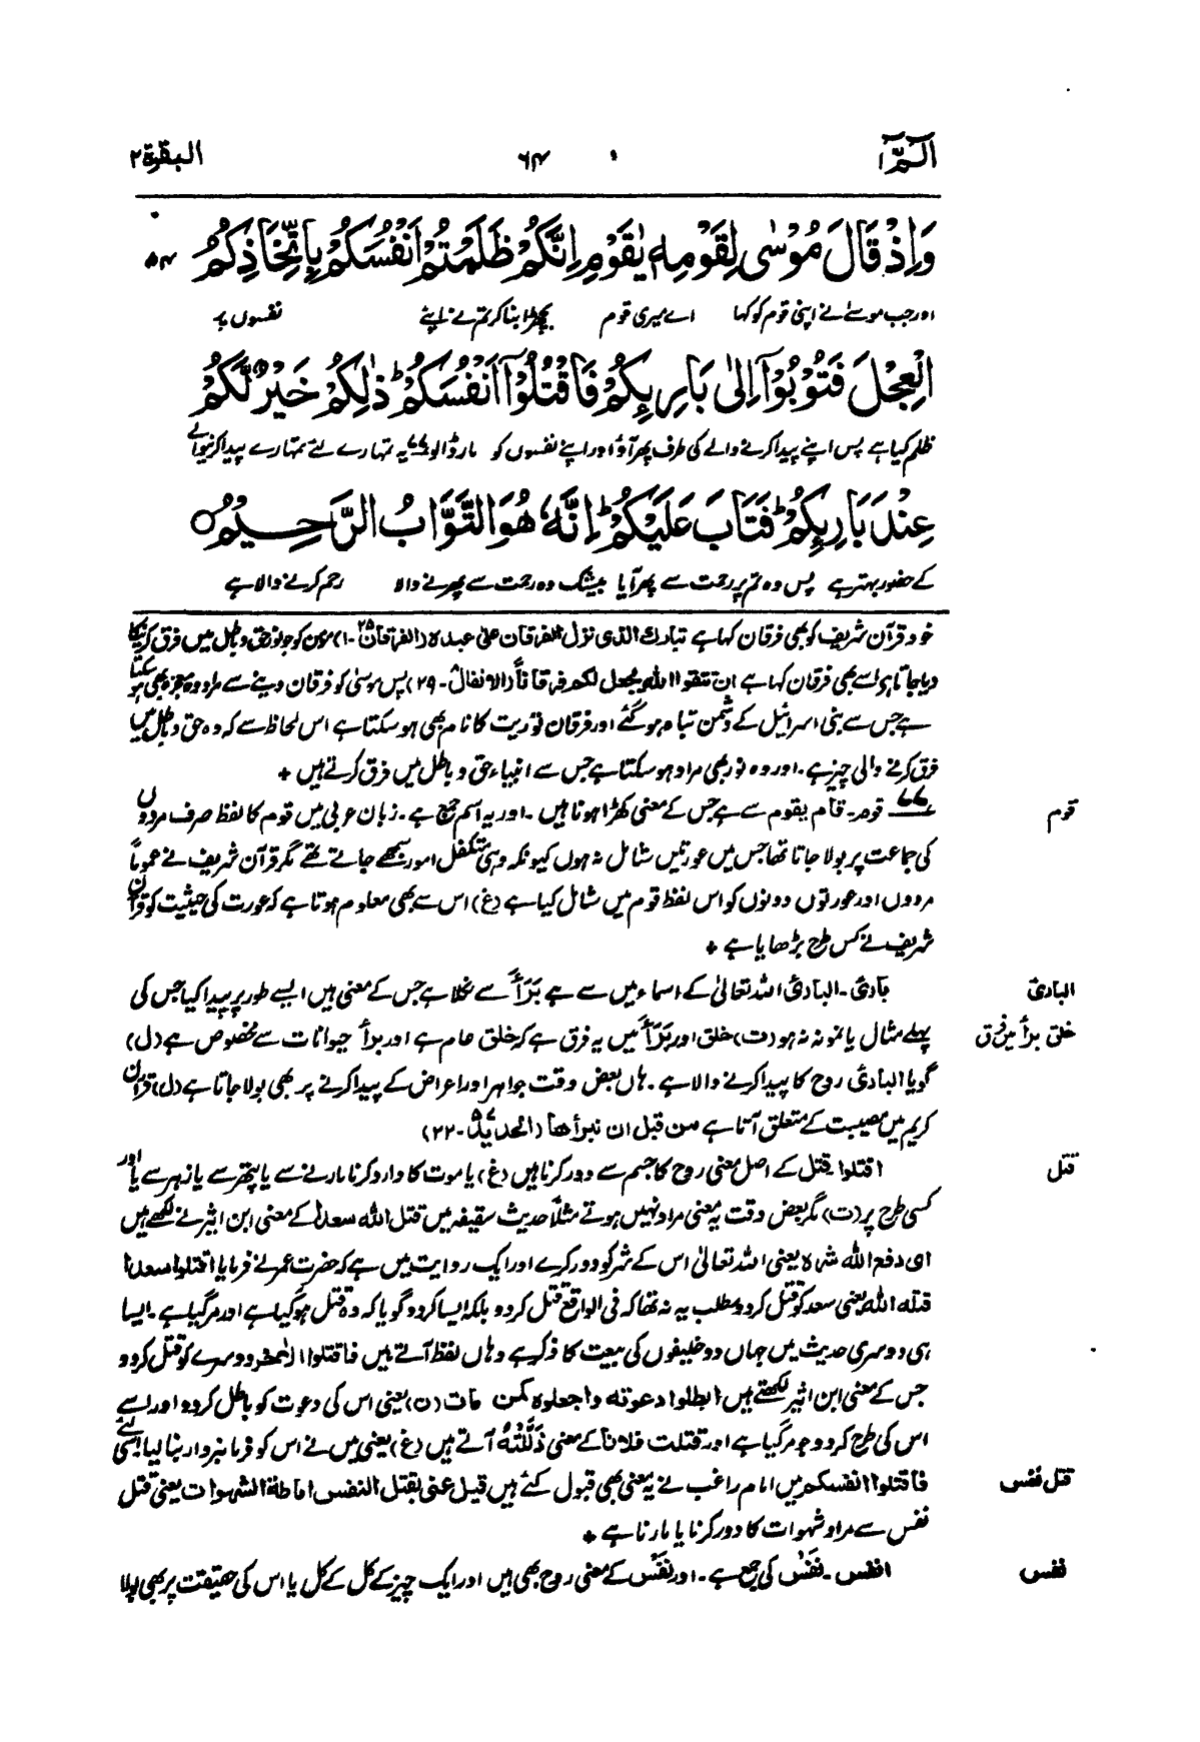 الٓمّٓ ۱
۶۴
البقرۃ ۲
وَاِذْ قَالَ مُوْسٰى لِقَوْمِهٖ يٰقَوْمِ اِنَّكُمْ ظَلَمْتُمْ اَنْفُسَكُمْ بِاتِّخَاذِكُمُ
۵۴
اور جب موسےٰ نے اپنی قوم کو کہا اے میری قوم بچھڑا بنا کر تم نے اپنے نفسوں پر
الْعِجْلَ فَتُوْبُوْٓا اِلٰى بَارِىِٕكُمْ فَاقْتُلُوْٓا اَنْفُسَكُمْ ؕ ذٰلِكُمْ خَيْرٌ لَّكُمْ
ظلم کیا ہے پس اپنے پیدا کرنے والے کی طرف پھر آؤ اور اپنے نفسوں کو مار ڈالو ۷۷ یہ تمہارے لئے تمہارے پیدا کرنیوالے
عِنْدَ بَارِىِٕكُمْ ؕ فَتَابَ عَلَيْكُمْ ؕ اِنَّهٗ هُوَ التَّوَّابُ الرَّحِيْمُ ○
کے حضور بہتر ہے پس وہ تم پر رحمت سے پھر آیا بیشک وہ رحمت سے پھرنے والا رحم کرنے والا ہے
خود قرآن شریف کو بھی فرقان کہا ہے تبارك الذی نزل الفرقان علی عبدہ (الفرقان ۲۵-۱) مومن کو جو نور حق و باطل میں فرق کرنیکا
دیا جاتا ہے اسے بھی فرقان کہا ہے ان تتقوا اللہ یجعل لکم فرقاناً (الانفال ۸-۲۹) پس موسیٰ کو فرقان دینے سے مراد وہ معجزہ بھی ہو سکتا
ہے جس سے بنی اسرائیل کے دشمن تباہ ہو گئے اور فرقان توریت کا نام بھی ہو سکتا ہے اس لحاظ سے کہ وہ حق و باطل میں
فرق کرنے والی چیز ہے۔ اور وہ نور بھی مراد ہو سکتا ہے جس سے انبیاء حق و باطل میں فرق کرتے ہیں +
قوم
۷۷ قوم۔ قام یقوم سے ہے جس کے معنی کھڑا ہونا ہیں۔ اور یہ اسم جمع ہے۔ زبان عربی میں قوم کا لفظ صرف مردوں
کی جماعت پر بولا جاتا تھا جس میں عورتیں شامل نہ ہوں کیونکہ وہی متکفل امور سمجھے جاتے تھے مگر قرآن شریف نے عموماً
مردوں اور عورتوں دونوں کو اس لفظ قوم میں شامل کیا ہے (غ) اس سے بھی معلوم ہوتا ہے کہ عورت کی حیثیت کو قرآن
شریف نے کس طرح بڑھایا ہے +
البارئ
بَارِئ۔ البارئ اللہ تعالیٰ کے اسماء میں سے ہے بَرَأَ سے نکلا ہے جس کے معنی ہیں ایسے طور پر پیدا کیا جس کی
خلق برأ میں فرق
پہلے مثال یا نمونہ نہ ہو (ت) خلق اور بَرَأَ میں یہ فرق ہے کہ خلق عام ہے اور برأ حیوانات سے مخصوص ہے (ل)
گویا البارئ روح کا پیدا کرنے والا ہے۔ ہاں بعض وقت جواہر اور اعراض کے پیدا کرنے پر بھی بولا جاتا ہے (ل) قرآن
کریم میں مصیبت کے متعلق آتا ہے من قبل ان نبرأھا (الحدید ۵۷-۲۲)
قتل
اقتلوا۔ قتل کے اصل معنی روح کا جسم سے دور کرنا ہیں (غ) یا موت کا وارد کرنا مارنے سے یا پتھر سے یا زہر سے یا اور
کسی طرح پر (ت) مگر بعض وقت یہ معنی مراد نہیں ہوتے مثلاً حدیث سقیفہ میں قتل اللہ سعدا کے معنی ابن اثیر نے لکھے ہیں
ای دفع اللہ شرہ یعنی اللہ تعالیٰ اس کے شر کو دور کرے اور ایک روایت میں ہے کہ حضرت عمر نے فرمایا اقتلوا سعدا
قتلہ اللہ یعنی سعد کو قتل کر دو مطلب یہ نہ تھا کہ فی الواقع قتل کر دو بلکہ ایسا کر دو گویا کہ وہ قتل ہو گیا ہے اور مر گیا ہے۔ ایسا
ہی دوسری حدیث میں جہاں دو خلیفوں کی بیعت کا ذکر ہے وہاں لفظ آتے ہیں فاقتلوا الآخر دوسرے کو قتل کر دو
جس کے معنی ابن اثیر لکھتے ہیں ابطلوا دعوتہ واجعلوہ کمن مات (ن) یعنی اس کی دعوت کو باطل کر دو اور اسے
اس کی طرح کر دو جو مر گیا ہے اور قتلت فلانا کے معنی ذَلَّلْتُهُ آتے ہیں (غ) یعنی میں نے اس کو فرمانبردار بنا لیا اسی لئے
قتل نفس
فاقتلوا انفسکم میں امام راغب نے یہ معنی بھی قبول کئے ہیں قیل عنی بقتل النفس اماطۃ الشہوات یعنی قتل
نفس سے مراد شہوات کا دور کرنا یا مارنا ہے +
نفس
انفس۔ نَفْس کی جمع ہے۔ اور نَفْس کے معنی روح بھی ہیں اور ایک چیز کے کل کے کل یا اس کی حقیقت پر بھی بولا